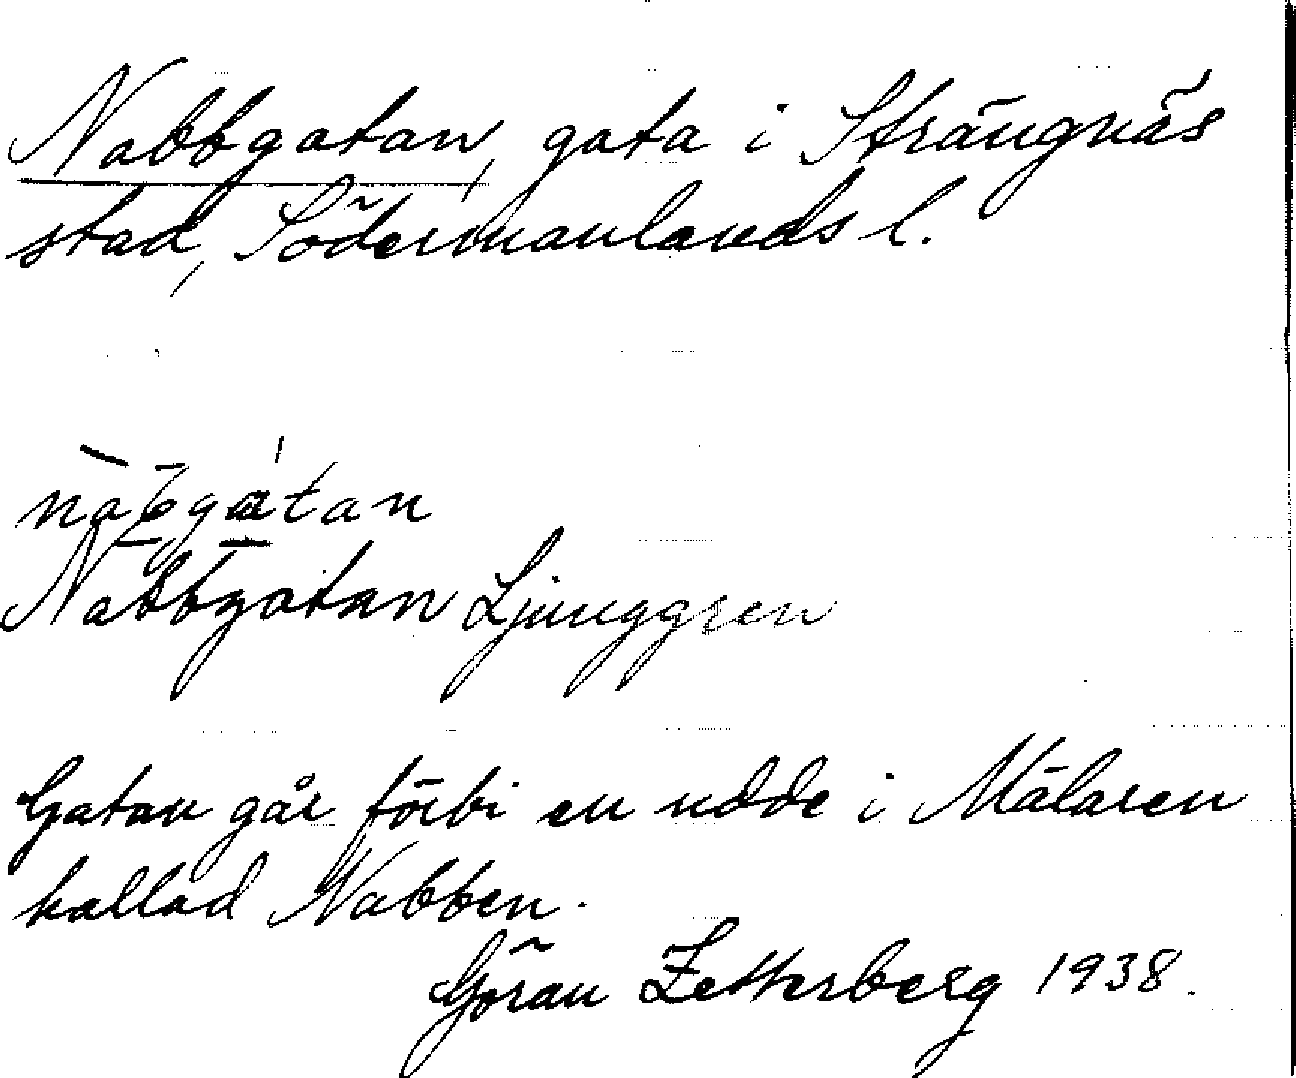 Nabbgatan, gata i Strängnäs
stad, Södermanlands l.
nabgatan
Nabbgatan Ljunggren
Gatan går förbi en udde i Mälaren
kallad Nabben.
Göran Zetterberg 1938.